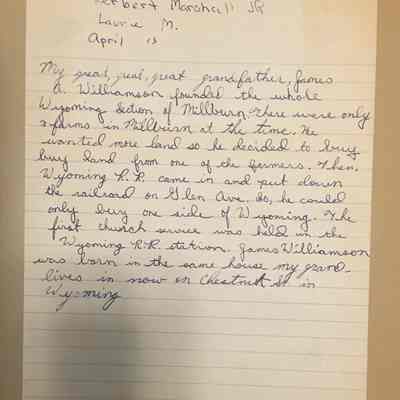 Herbert Marshall JR
Laurie M.
April 13
My great, great, great grandfather, James
A. Williamson founded the whole
Wyoming Section of Millburn. There were only
farms in Millburn at the time. He
wanted more land so he decided to buy
buy land from one of the farmers. Then,
Wyoming R.R. came in and put down
the railroad on Glen Ave. So, he could
only buy one side of Wyoming. The
first church service was held in the
Wyoming R.R. station. James Williamson
was born in the same house my grand-
lives in now on Chestnut St in
Wyoming